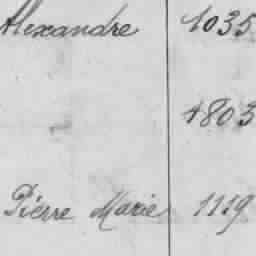 Alexandre 1035
1803
Pierre Marie 1119